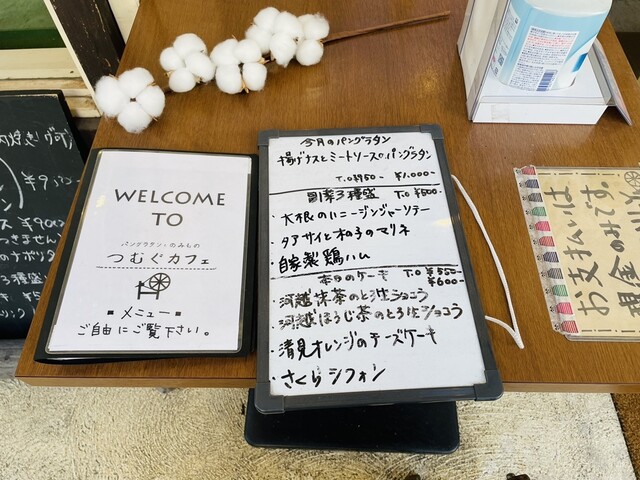 WELCOME
TO
パングラタン・のみもの
つむぐカフェ
メニュー
ご自由にご覧下さい。
今月のパングラタン
揚げナスとミートソースのパングラタン
T.O ¥950- ¥1.000-
副菜3種盛 T.O ¥500-
・大根のハニージンジャーソテー
・タアサイと木の子のマリネ
・自家製鶏ハム
本日のケーキ T.O ¥550-
¥600-
・河越抹茶のとろ生ショコラ
・河越ほうじ茶のとろ生ショコラ
・清見オレンジのチーズケーキ
・さくらシフォン
お支払いは
現金のみです。
3種盛